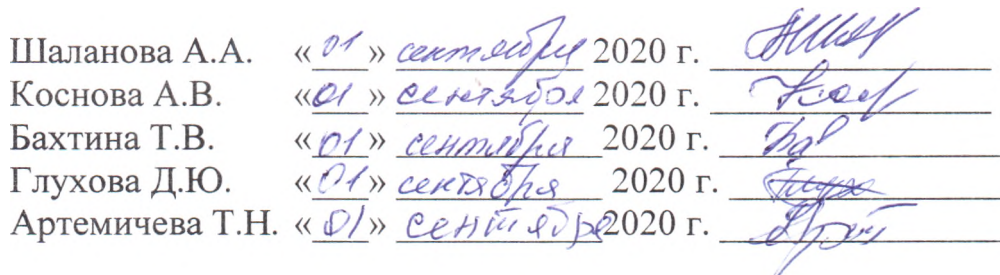 Шаланова А.А. «01» сентября 2020 г.
Коснова А.В. «01» сентября 2020 г.
Бахтина Т.В. «01» сентября 2020 г.
Глухова Д.Ю. «01» сентября 2020 г.
Артемичева Т.Н. «01» сентября 2020 г.